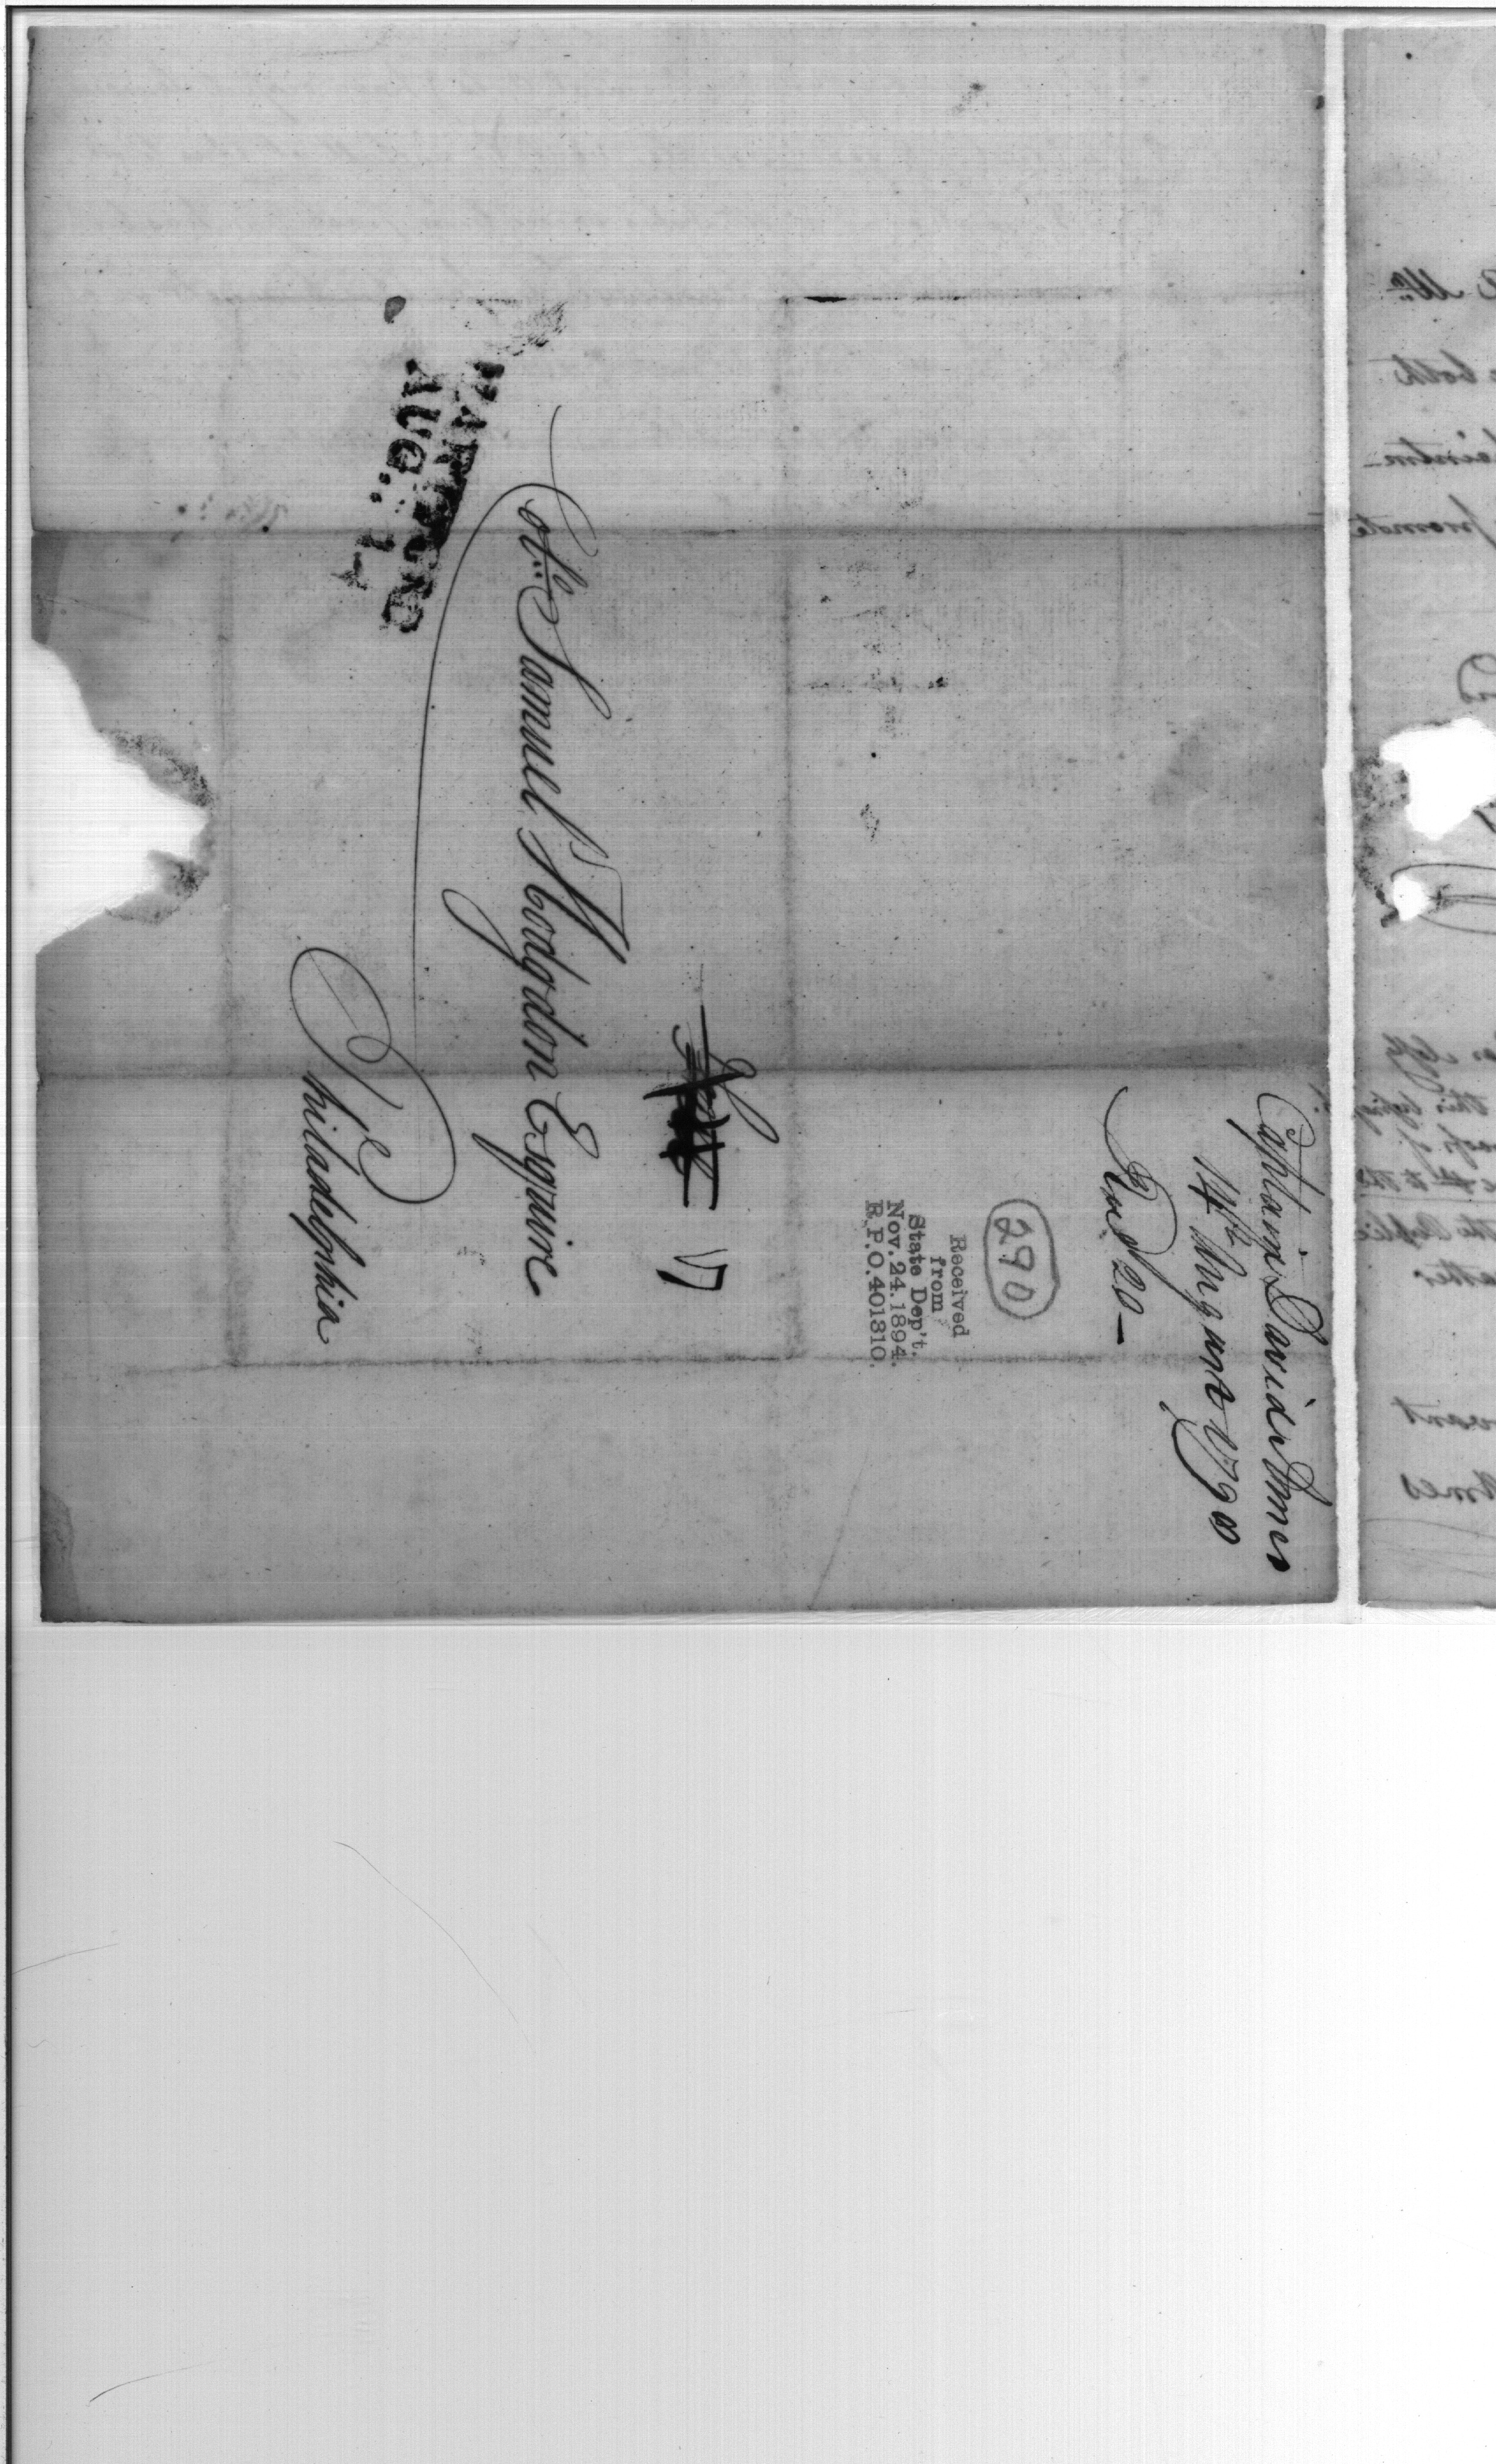 Captain David Ames
14th August 1798
Rec'd 20 —
290
Received
from
State Dep't.
Nov. 24. 1894.
R.P.O. 401310.
17
Colo. Samuel Hodgdon Esquire
Philadelphia
HARTFORD
AUG.